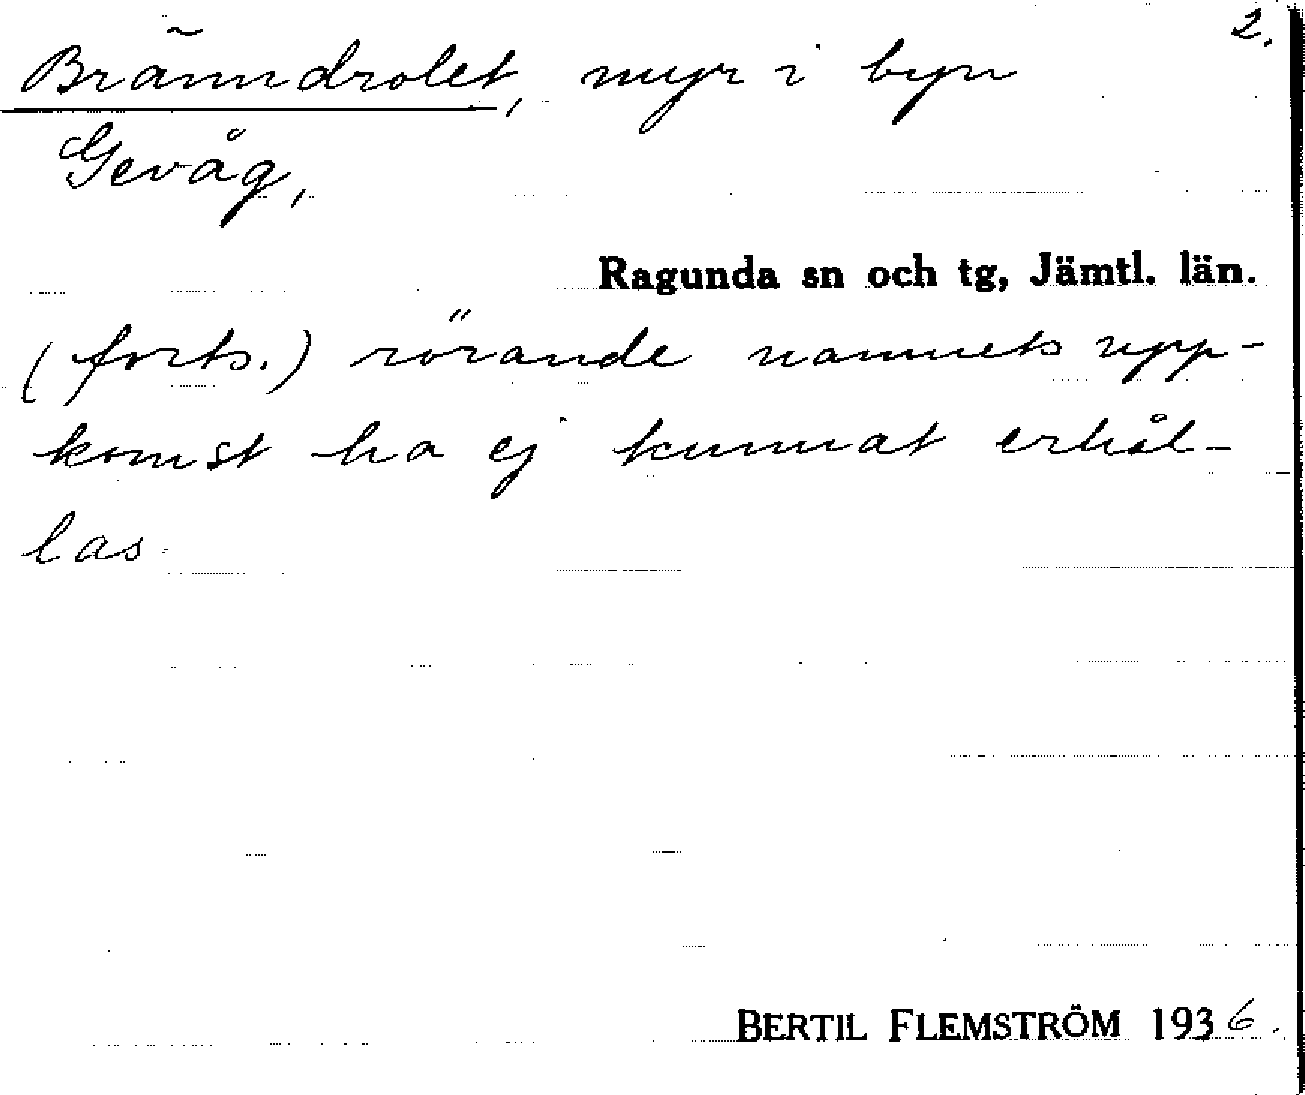 2.
Bränndrolet, myr i byn
Gevåg,
Ragunda sn och tg, Jämtl. län.
(forts.) rörande namnets upp-
komst ha ej kunnat erhål-
las.
BERTIL FLEMSTRÖM 1936.